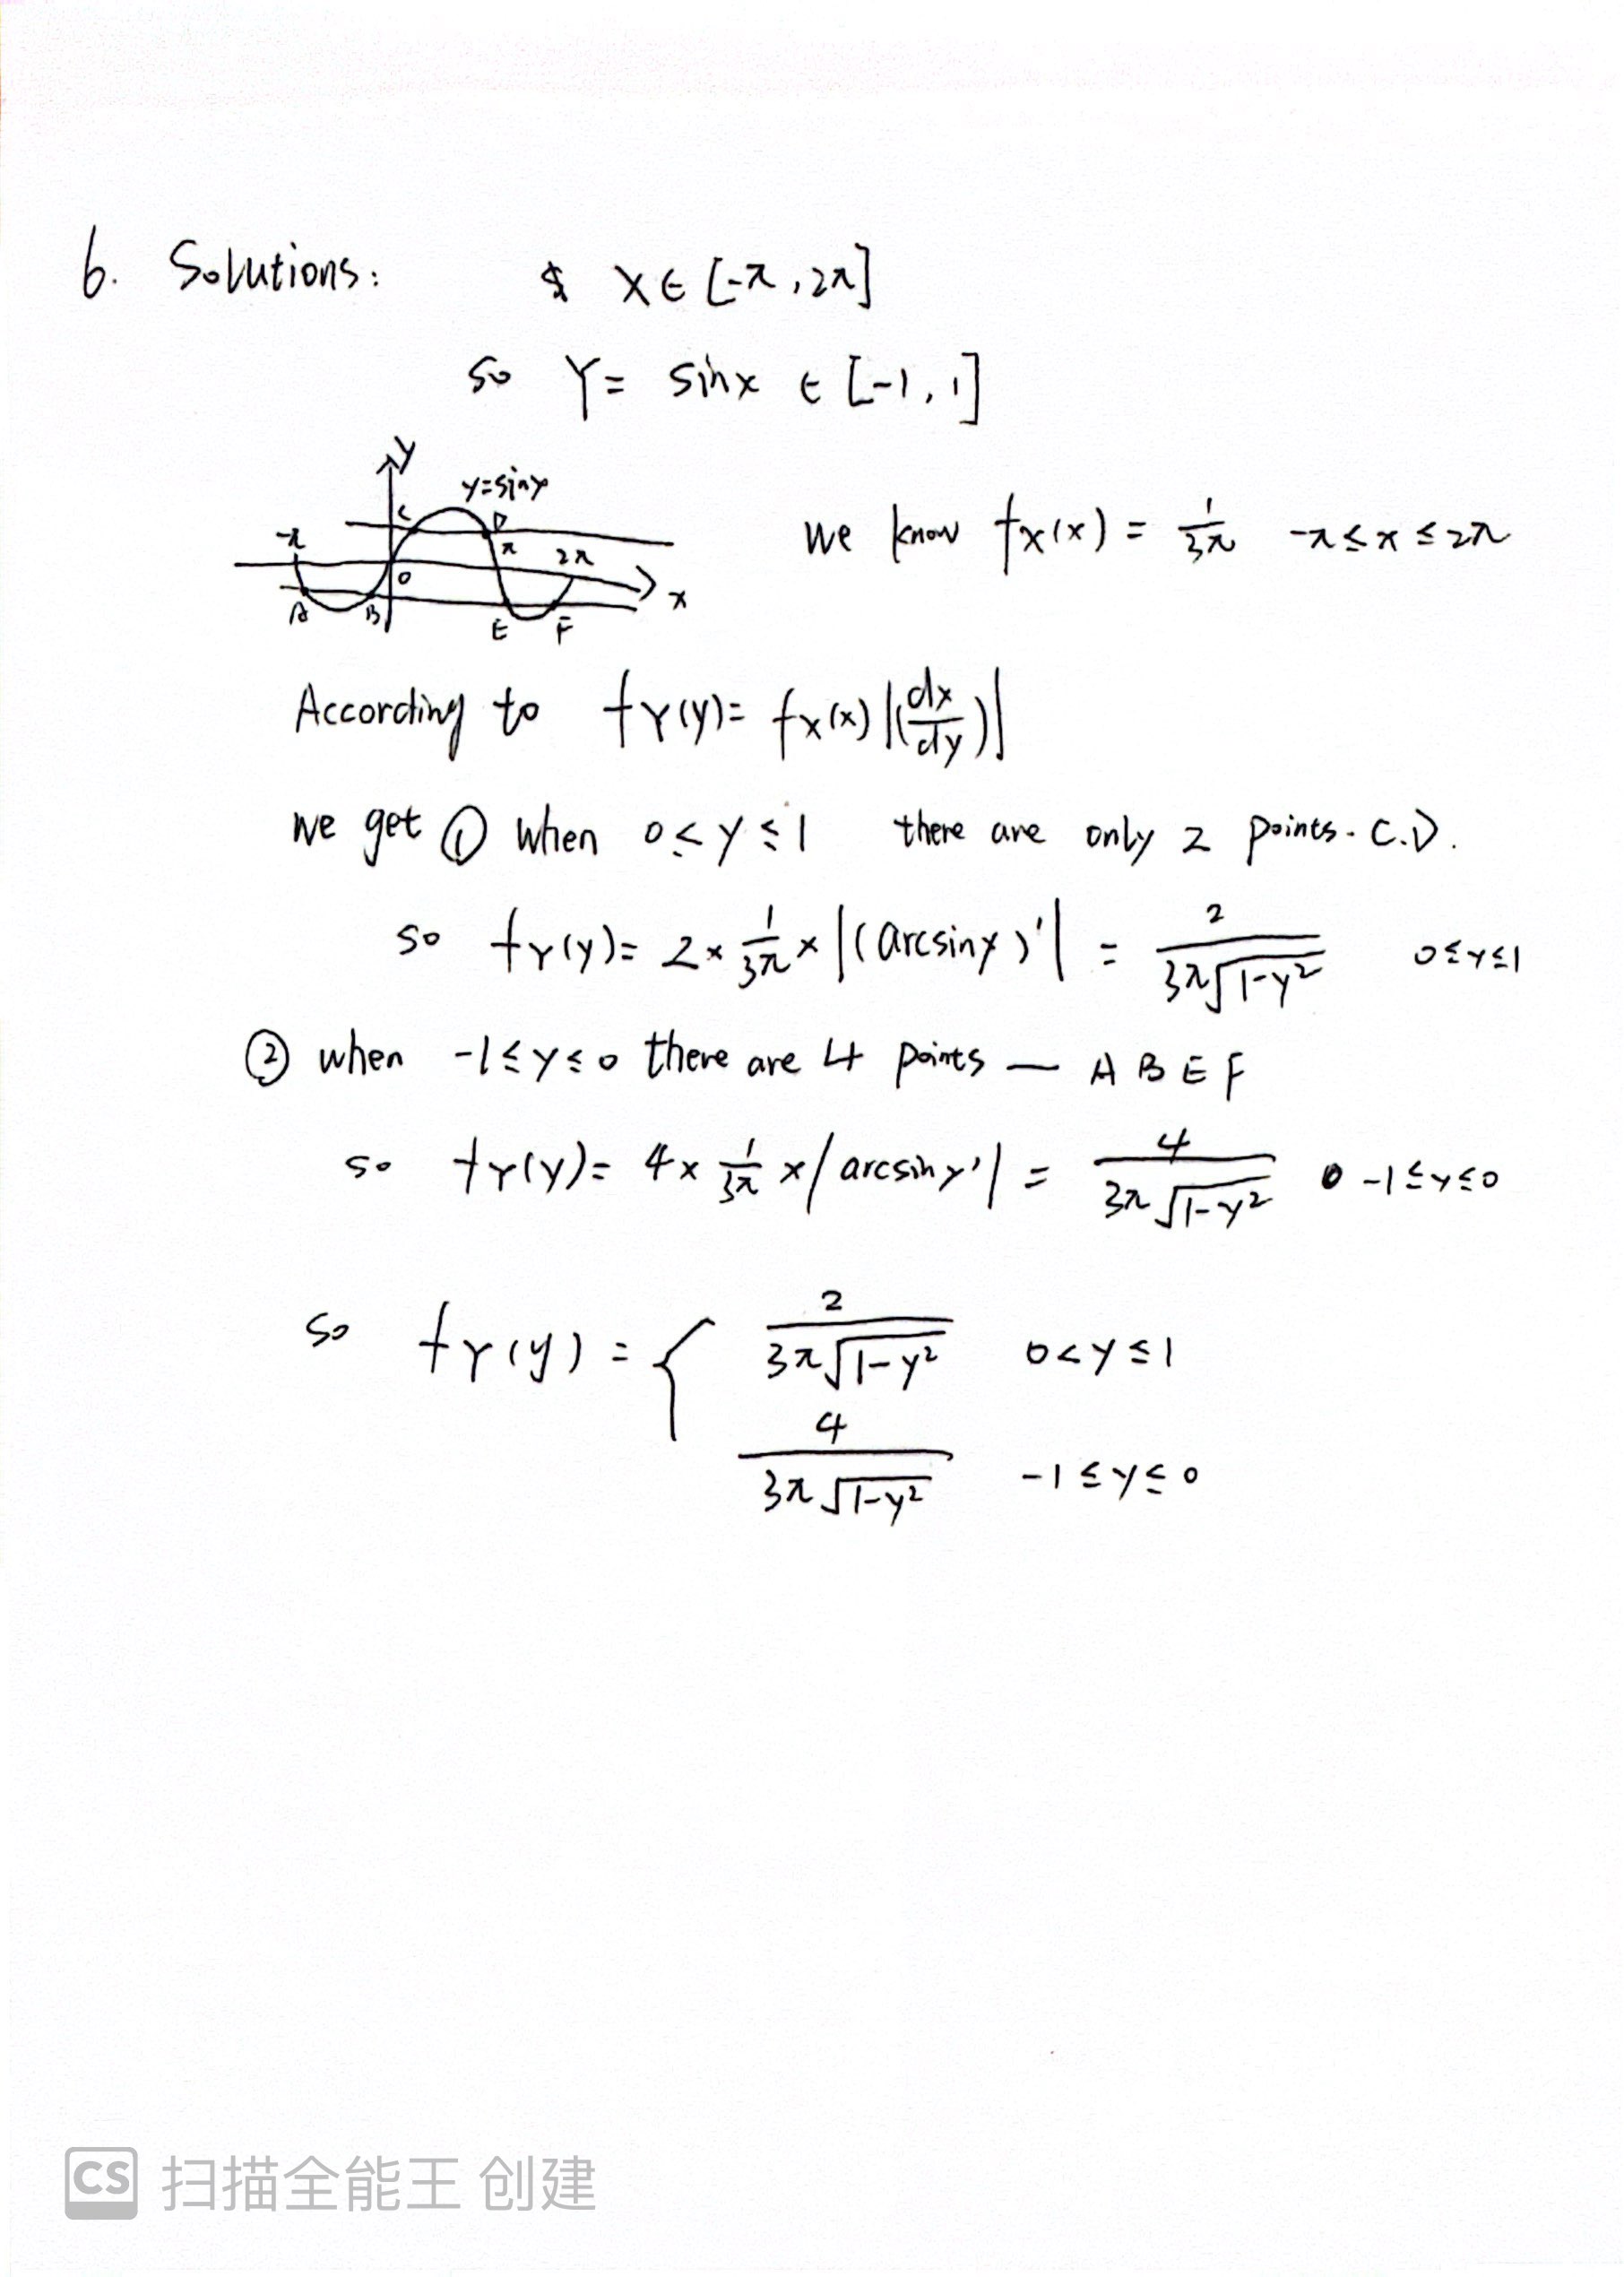 6. Solutions: X ∈ [-π, 2π]
so Y = sinx ∈ [-1, 1]
y
y=sinx
C D
-π π 2π
0 x
A B E F
We know fX(x) = 1/3π -π ≤ x ≤ 2π
According to fY(y) = fX(x) |(dx/dy)|
we get ① when 0 ≤ y ≤ 1 there are only 2 points. C.D.
so fY(y) = 2 × 1/3π × |(arcsiny)'| = 2/(3π√(1-y²)) 0 ≤ y ≤ 1
② when -1 ≤ y ≤ 0 there are 4 points — A B E F
so fY(y) = 4 × 1/3π × |arcsiny'| = 4/(3π√(1-y²)) -1 ≤ y ≤ 0
so fY(y) = { 2/(3π√(1-y²)) 0 < y ≤ 1
4/(3π√(1-y²)) -1 ≤ y ≤ 0
CS 扫描全能王 创建